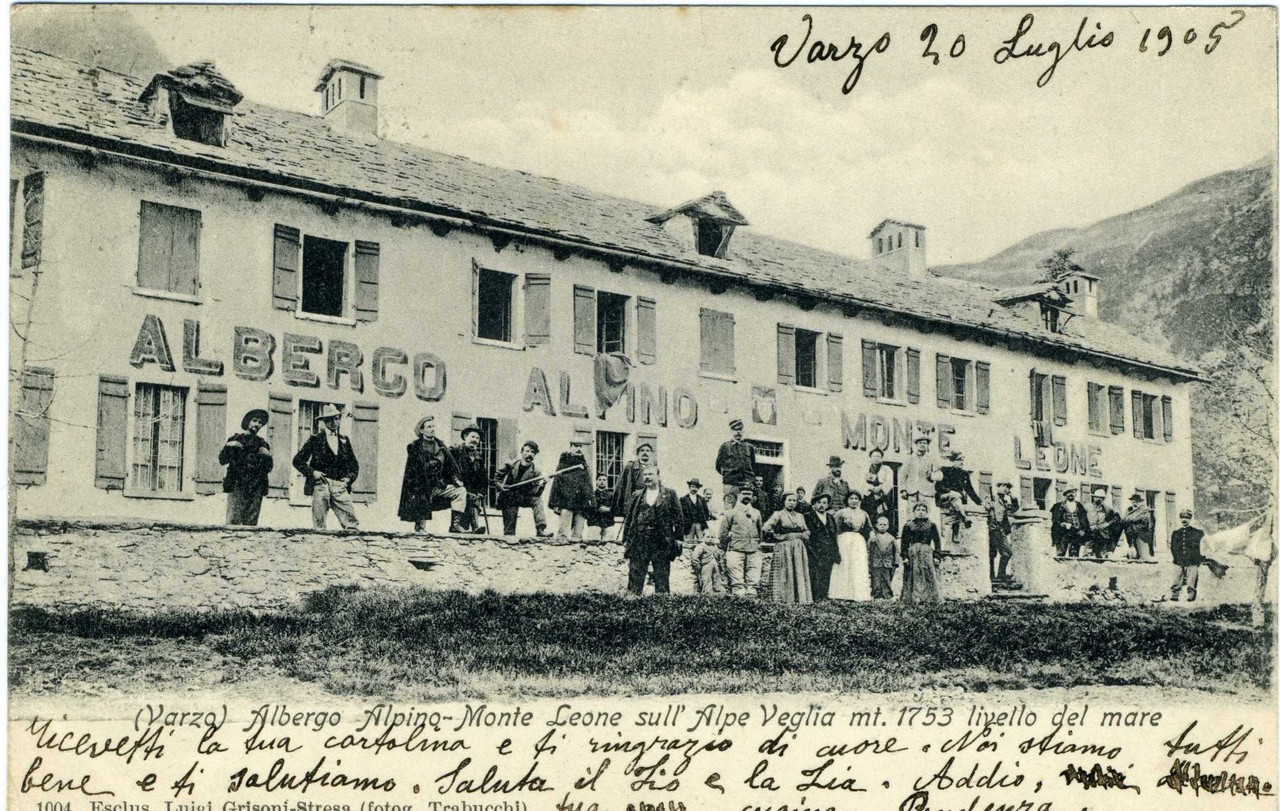 Varzo 20 Luglio 1905
ALBERGO ALPINO MONTE LEONE
(Varzo) Albergo Alpino-Monte Leone sull'Alpe Veglia mt. 1753 livello del mare
Ricevetti la tua cartolina e ti ringrazio di cuore. Noi stiamo tutti
bene e ti salutiamo. Saluta il Zio e la Zia. Addio,
1004 Esclus. Luigi Grisoni-Stresa (fotog. Trabucchi) tua cugina Prudenza.